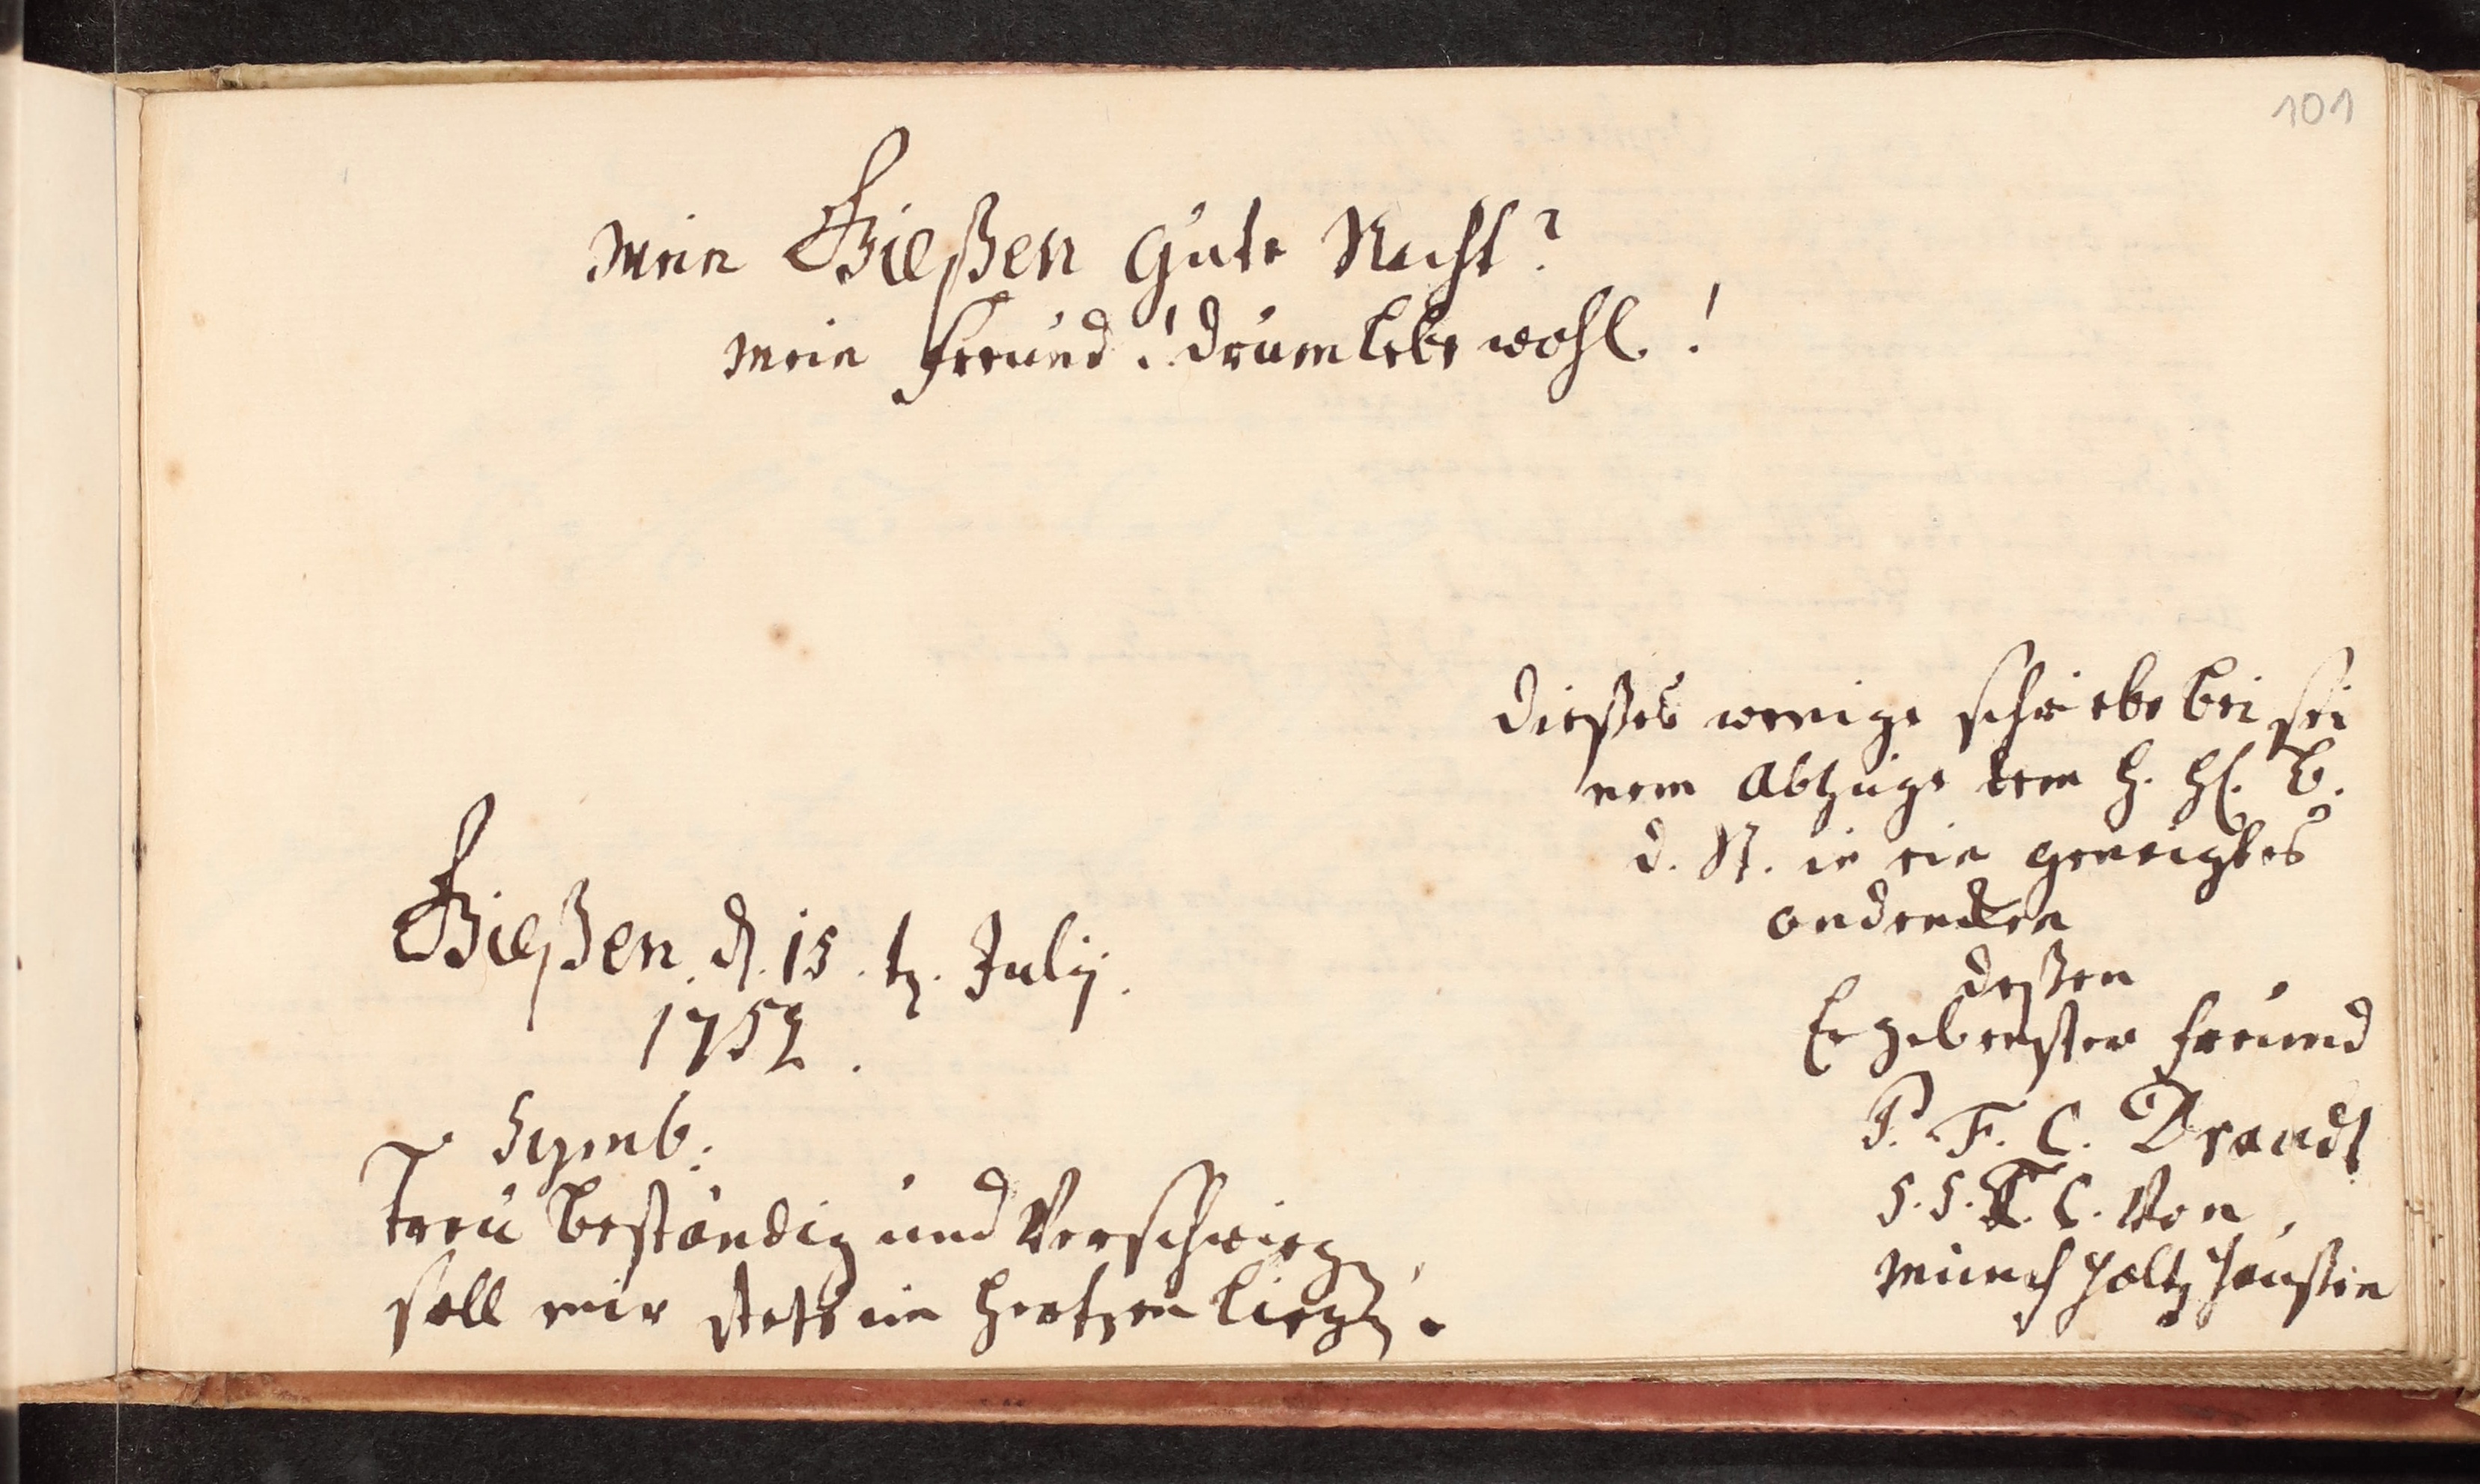 101
Mein Gießen Gute Nacht?
mein Freund! drum lebe wohl!
Dießes wenige schriebe bei sei
nem Abtzuge dem H. Hl. B.
d. St. in ein geneigtes
andencken
deßen
Ergebenster Freund
P. F. C. Brandt
S. S. T. C. Von
Münchholtzhaußen
Gießen. d. 15. t. Julij.
1752.
Symb:
Treu beständig und Verschwiegen
soll mir stets im Hertzen liegen.